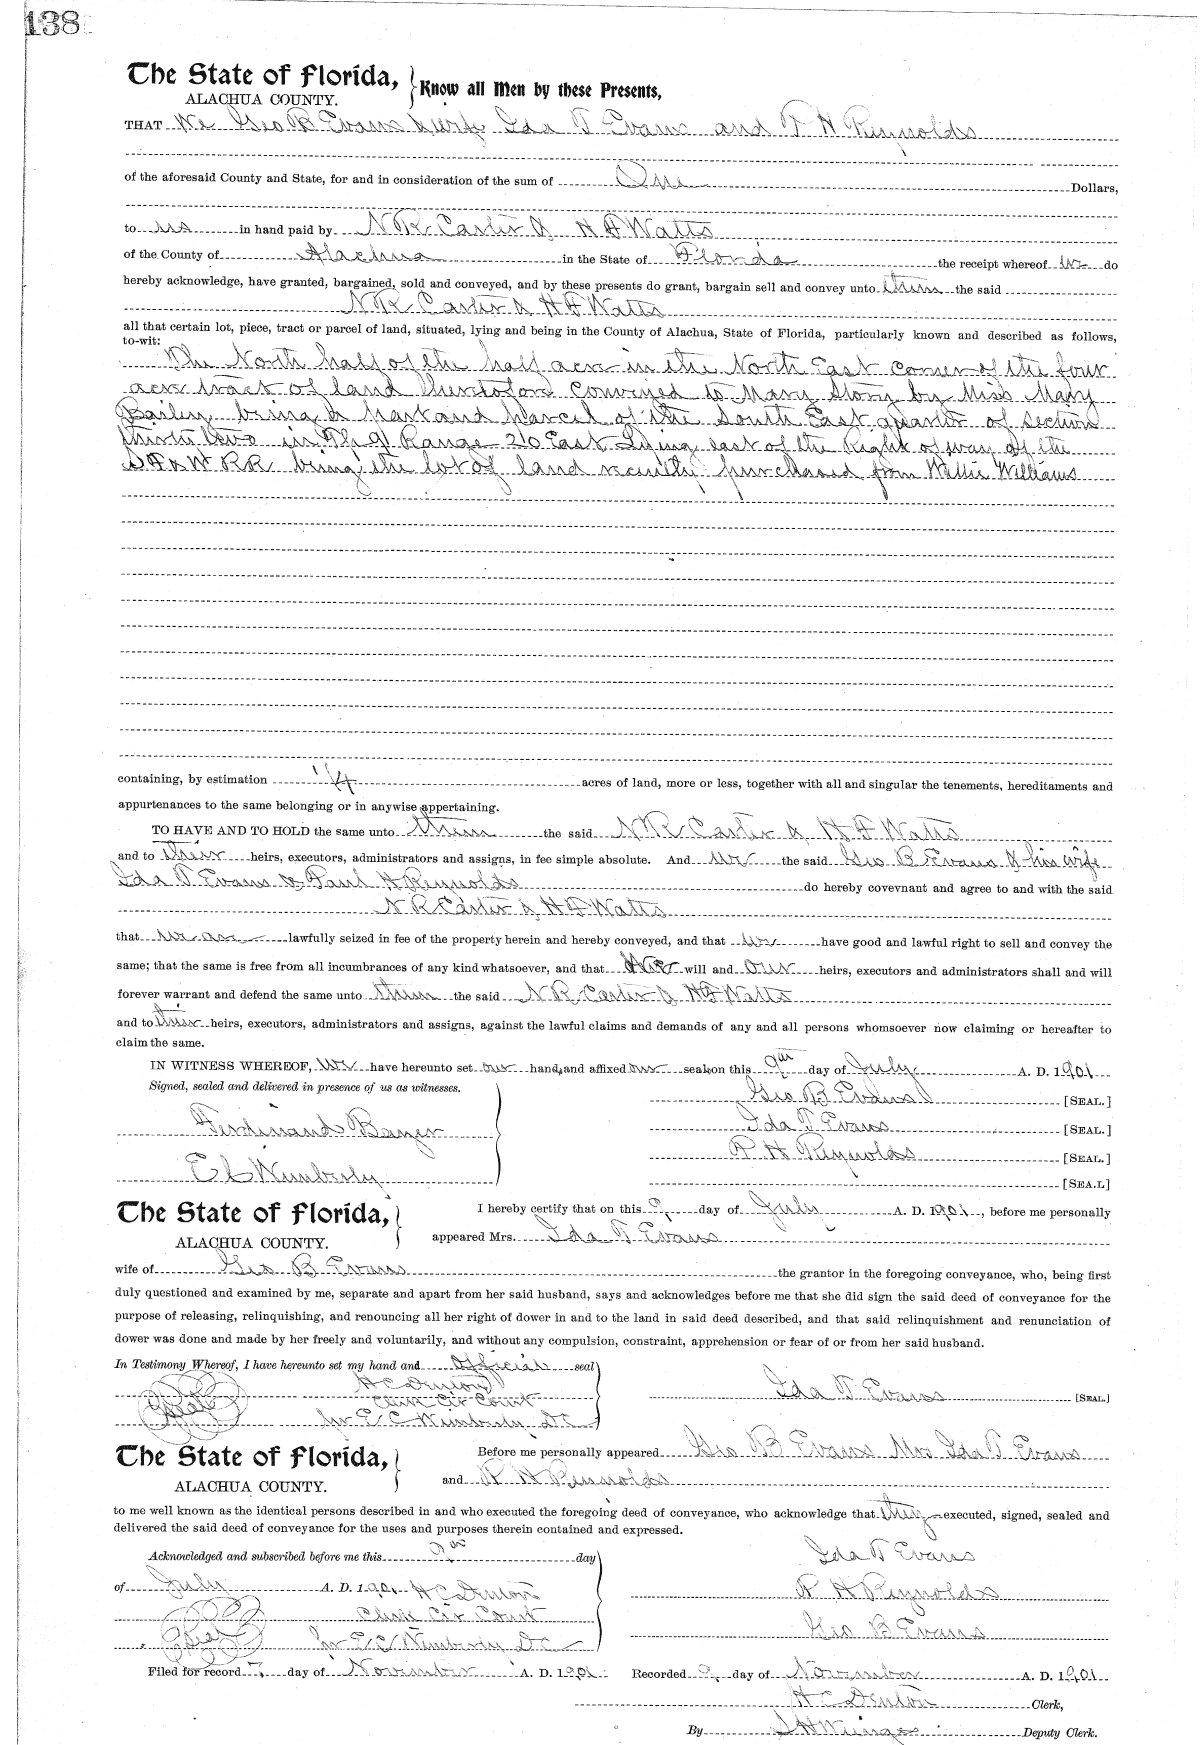 138
The State of Florida, } Know all Men by these Presents,
ALACHUA COUNTY.
THAT We Geo B Evans & wife Ida T Evans and P H Reynolds
of the aforesaid County and State, for and in consideration of the sum of One Dollars,
to us in hand paid by N R Carter & H F Watts
of the County of Alachua in the State of Florida the receipt whereof we do
hereby acknowledge, have granted, bargained, sold and conveyed, and by these presents do grant, bargain sell and convey unto them the said
N R Carter & H F Watts
all that certain lot, piece, tract or parcel of land, situated, lying and being in the County of Alachua, State of Florida, particularly known and described as follows,
to-wit:
The North half of the half acre in the North East corner of the four
acre tract of land heretofore conveyed to Mary Story by Miss Mary
Bailey being a part and parcel of the South East quarter of section
thirty two in Tp 9 Range 20 East Lying east of the Right of way of the
S F & W RR being the lot of land recently purchased from Willie Williams
containing, by estimation 1/4 acres of land, more or less, together with all and singular the tenements, hereditaments and
appurtenances to the same belonging or in anywise appertaining.
TO HAVE AND TO HOLD the same unto them the said N R Carter & H F Watts
and to their heirs, executors, administrators and assigns, in fee simple absolute. And we the said Geo B Evans & his wife
Ida T Evans & Paul H Reynolds do hereby covevnant and agree to and with the said
N R Carter & H F Watts
that we are lawfully seized in fee of the property herein and hereby conveyed, and that we have good and lawful right to sell and convey the
same; that the same is free from all incumbrances of any kind whatsoever, and that will and our heirs, executors and administrators shall and will
forever warrant and defend the same unto them the said N R Carter & H F Watts
and to their heirs, executors, administrators and assigns, against the lawful claims and demands of any and all persons whomsoever now claiming or hereafter to
claim the same.
IN WITNESS WHEREOF, we have hereunto set our hand, and affixed our seal, on this 9th day of July A. D. 1901
Signed, sealed and delivered in presence of us as witnesses.
Geo B Evans [SEAL.]
Ferdinand Bayer
Ida T Evans [SEAL.]
P H Reynolds [SEAL.]
E C Wimberly
[SEAL]
The State of Florida,
ALACHUA COUNTY.
I hereby certify that on this 9 day of July A. D. 1901, before me personally
appeared Mrs. Ida T Evans
wife of Geo B Evans the grantor in the foregoing conveyance, who, being first
duly questioned and examined by me, separate and apart from her said husband, says and acknowledges before me that she did sign the said deed of conveyance for the
purpose of releasing, relinquishing, and renouncing all her right of dower in and to the land in said deed described, and that said relinquishment and renunciation of
dower was done and made by her freely and voluntarily, and without any compulsion, constraint, apprehension or fear of or from her said husband.
In Testimony Whereof, I have hereunto set my hand and official seal
H C Denton
Clerk Cir Court
Ida T Evans [SEAL.]
Seal
per E C Wimberly D C
The State of Florida,
ALACHUA COUNTY.
Before me personally appeared Geo B Evans Mrs Ida T Evans
and P H Reynolds
to me well known as the identical persons described in and who executed the foregoing deed of conveyance, who acknowledge that they executed, signed, sealed and
delivered the said deed of conveyance for the uses and purposes therein contained and expressed.
Acknowledged and subscribed before me this 9th day
Ida T Evans
of July A. D. 1901 H C Denton
P H Reynolds
Clerk Cir Court
Geo B Evans
Seal
per E C Wimberly D C
Filed for record 7 day of November A. D. 1901 Recorded 9 day of November A. D. 1901
H C Denton Clerk,
By Deputy Clerk.